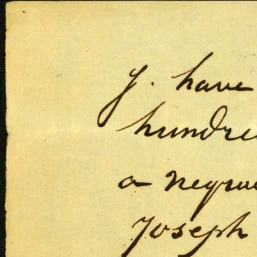 I. have
hundre
a negro
Joseph